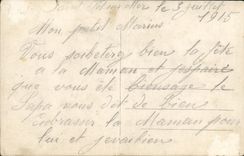 le 3 juillet
1915
Mon petit Marius
Vous souheterez bien la fête
a la Maman et j'espaire
que vous éte bien sage le
Papa vous dit de bien
Embrasser la Maman pour
lui et